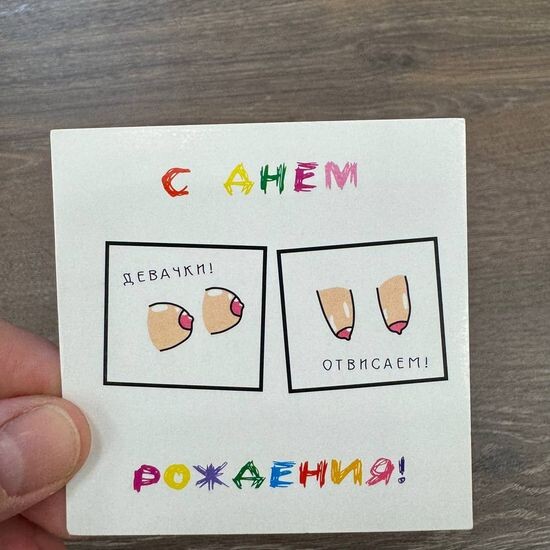 С ДНЕМ
ДЕВАЧКИ!
ОТВИСАЕМ!
РОЖДЕНИЯ!